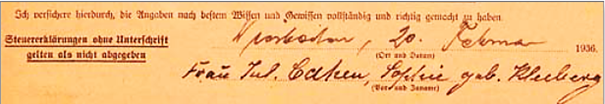 Ich versichere hierdurch, die Angaben nach bestem Wissen und Gewissen vollständig und richtig gemacht zu haben.
Steuererklärungen ohne Unterschrift
gelten als nicht abgegeben
Wiesbaden, 20. Februar 1936.
(Ort und Datum)
Frau Jul. Cahen, Sophie geb. Kleeberg
(Vor- und Zuname)